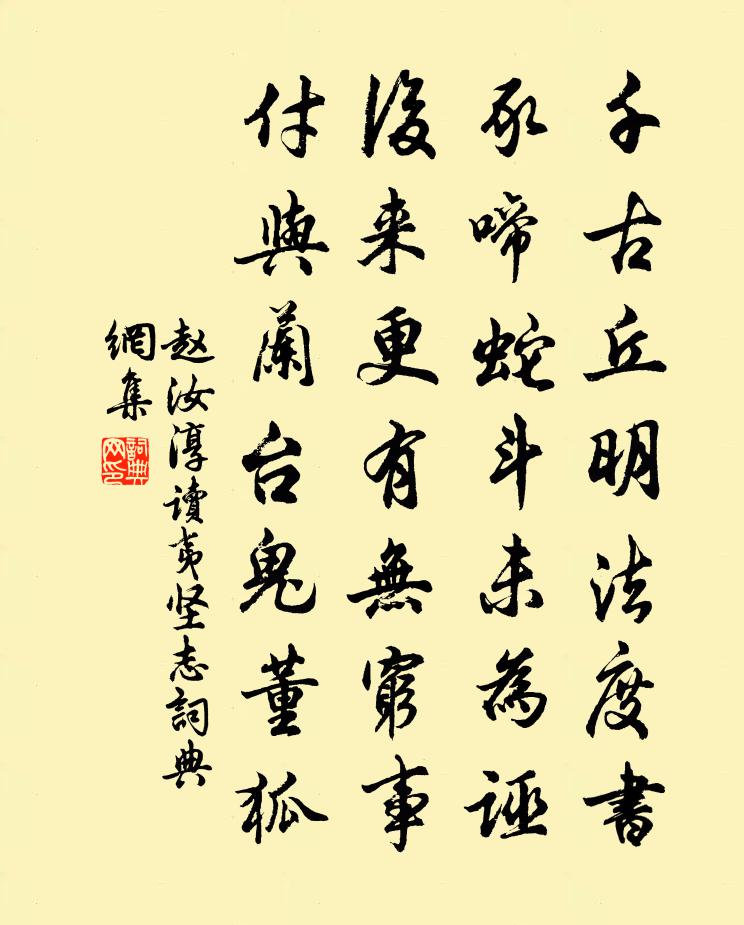 千古丘明法度書
豕啼蛇斗未為誣
後来更有無窮事
付與蘭台鬼董狐
赵汝淳讀夷坚志詞典
網集
詞典網印